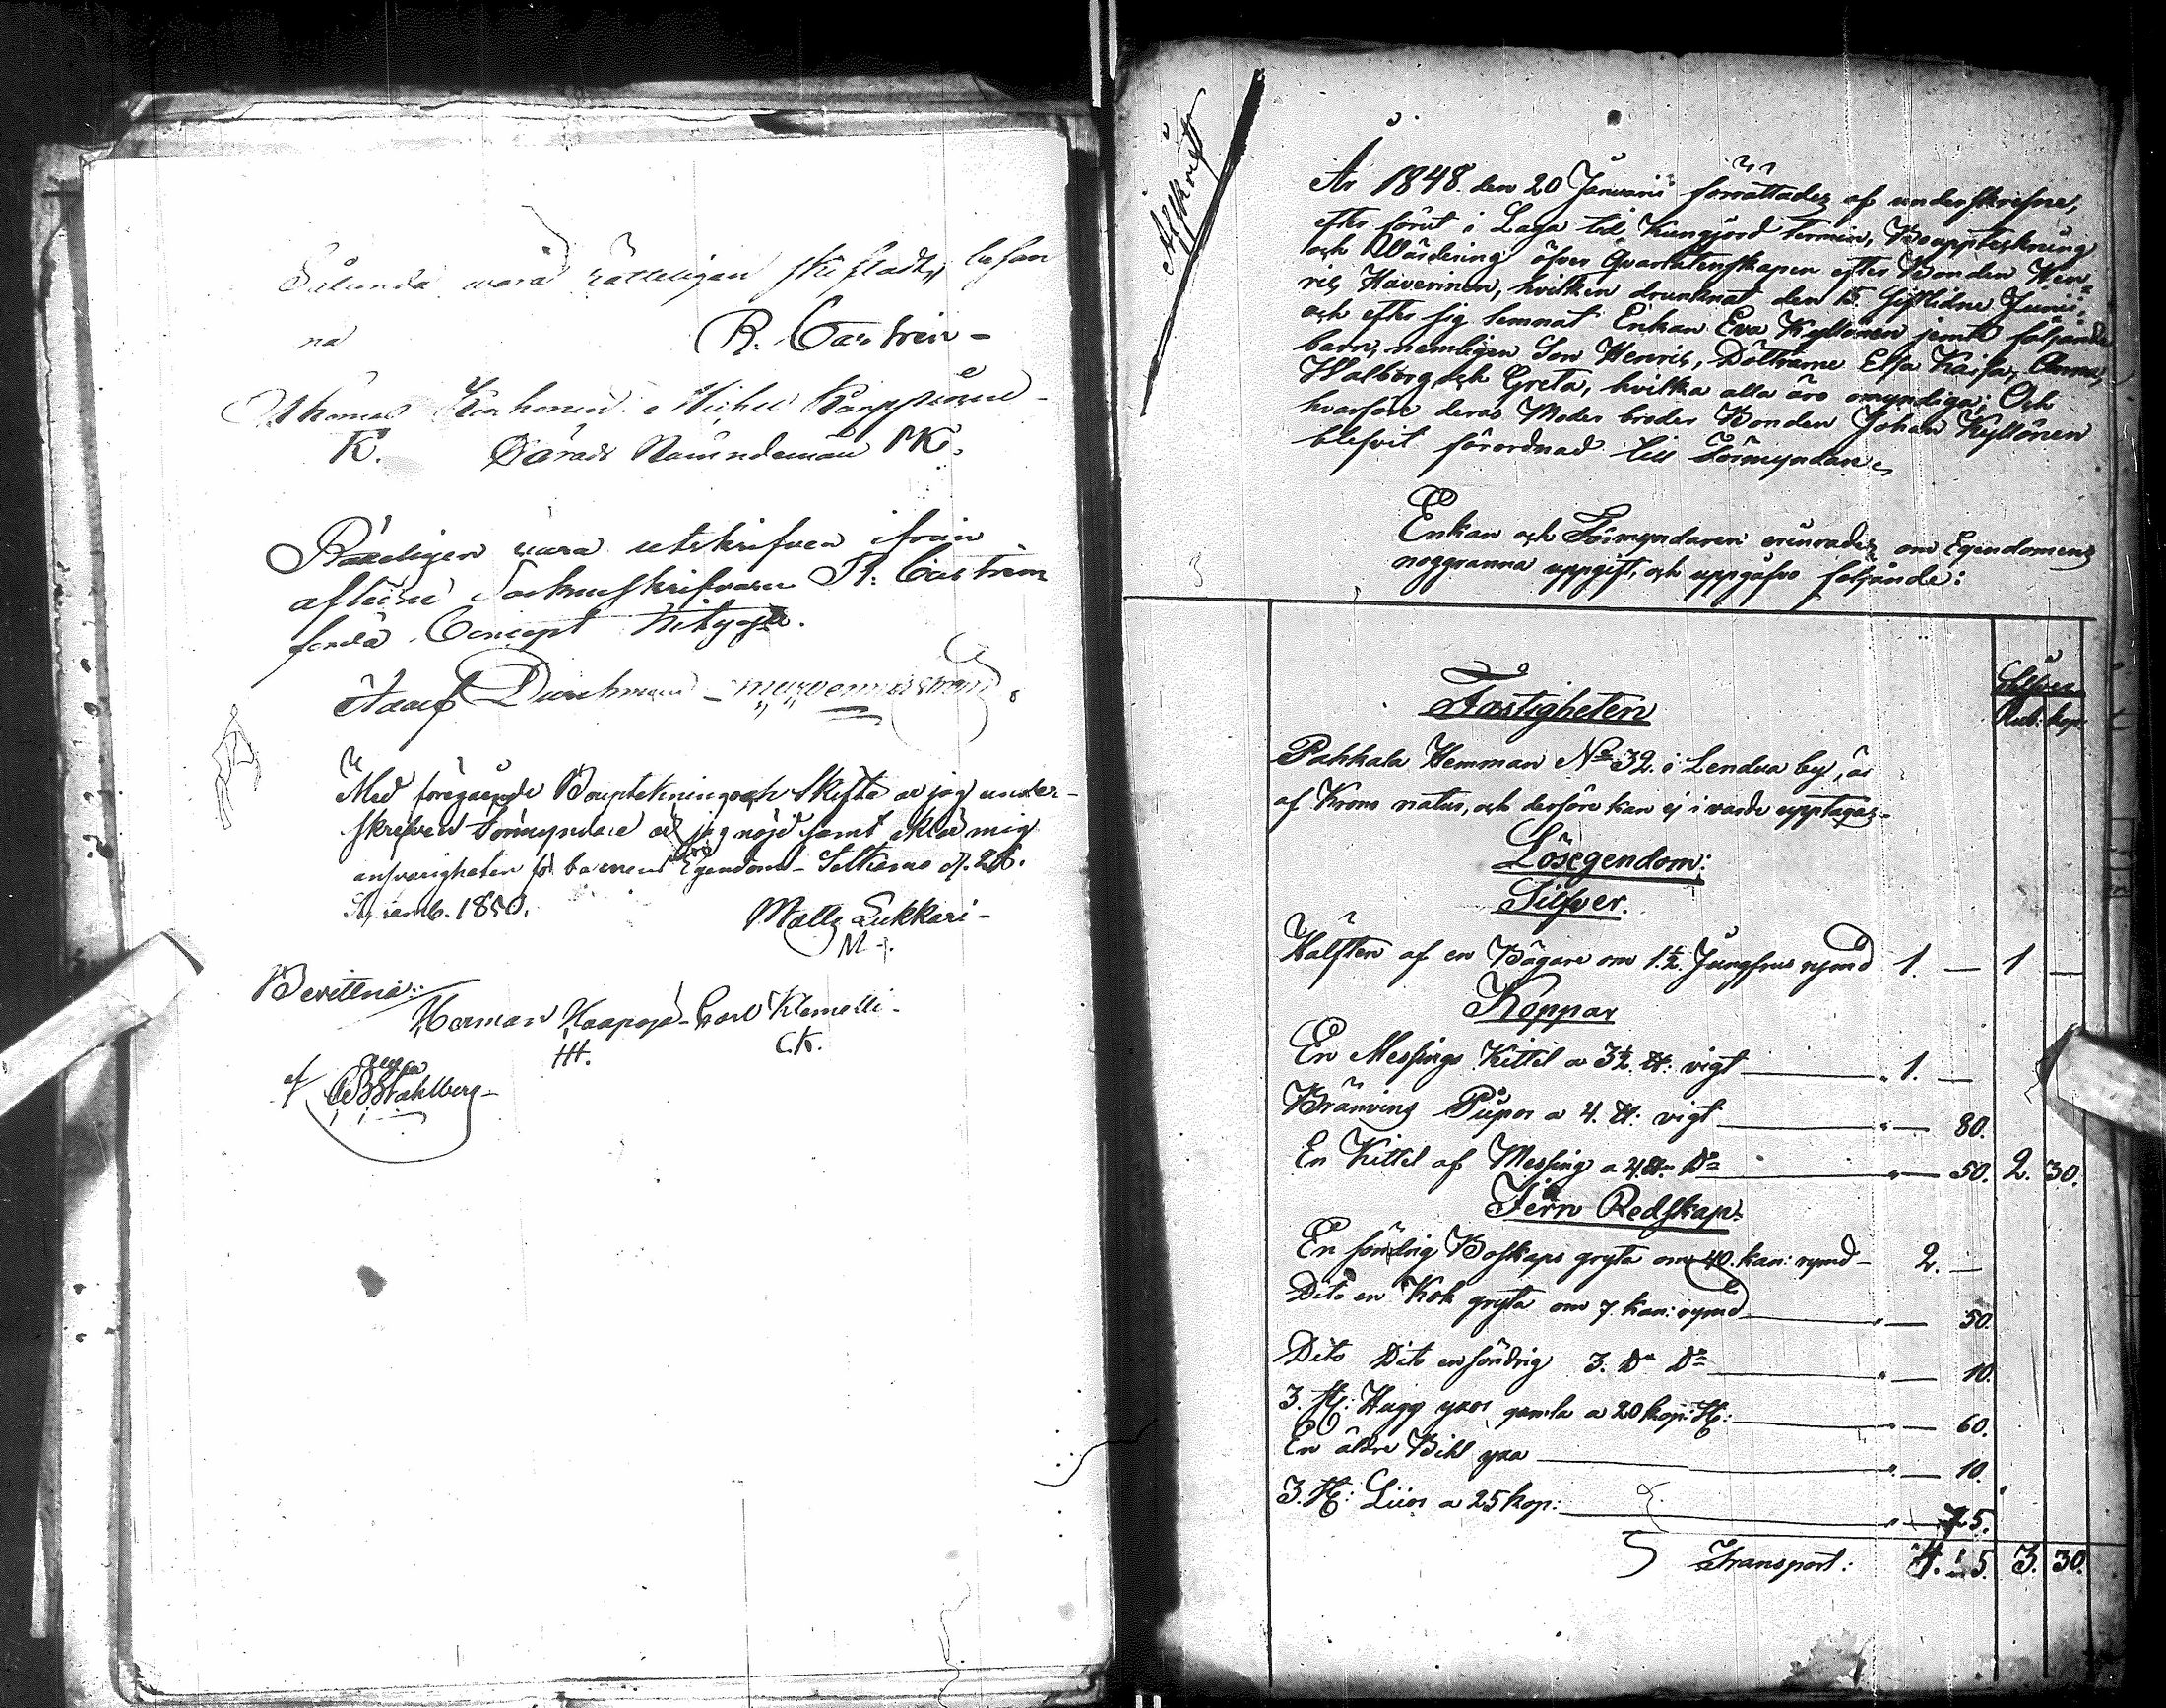 Sålunda vara rätteligen skiftadt, befan
na R. Castrén -
Thomas Karppinen
K. Härads Nämndeman MK.
Rätteligen vara utskrifven ifrån
aflidne Sockneskrifvaren R: Castréns
Concept betygar.
Adolf Durchman
Med föregående Bouptekning och Skifte är jag under-
skrefven Förmyndare nöjd samt iklär mig
ansvarigheten för barnens Egendom - d. 26.
1850. Matts Lukkari -
M +.
Bevittna:
Herman Haapoja - Carl Klemetti -
HH. C.K.
af
Wahlberg -
Afskrift
År 1848. den 20 Januarii förrättades af underskrefne,
efter förut i Laga tid kungjord termin, Bouppteckning
och Wärdering öfver Qvarlåtenskapen efter Bonden Hen=
ric Haverinen, hvilken drunknat den 15. sistlidne Junii,
och efter sig lemnat Enkan Eva Kyllönen jemte följande
barn, nemligen Son Henric, Döttrarne Elsa Kaisa, Anna,
Walborg och Greta, hvilka alla äro omyndiga; Och
hvarföre deras Moder broder Bonden Johan Kyllönen
blefvit förordnad till Förmyndare,
Enkan och Förmyndaren erinrades om Egendomens
noggranna uppgift, och uppgåfvo följande:
Silfver
Rub: kop:
Fastigheten
Pakkala Hemman No 32. i Lendua by, är
af Krono natur, och derföre kan ej i värde upptagas -
Lösegendom:
Silfver.
Hälften af en Bägare om 1.½. Jungfrus rymd 1. — 1 —
Koppar
En Messings Kittel a 3½ ℔: vigt — " 1. —
Bränvins Pipor a 4. ℔: vigt — " — 80.
En Kittel af Messing a 4 ℔: Do — " — 50. 2. 30.
Jern Redskap.
En söndrig Boskaps gryta om 40. kan: rymd - 2. —
Dito en Kok gryta om 7. kan: rymd — " — 50.
Dito Dito en söndrig 3. Do Do — " — 10.
3. st: Hugg yxor gamla a 20 kop: st: — " — 60.
En äldre Bihl yxa — " — 10.
3. st: Liior a 25 kop: — " — 75.
Transport: 4. 5. 3. 30.